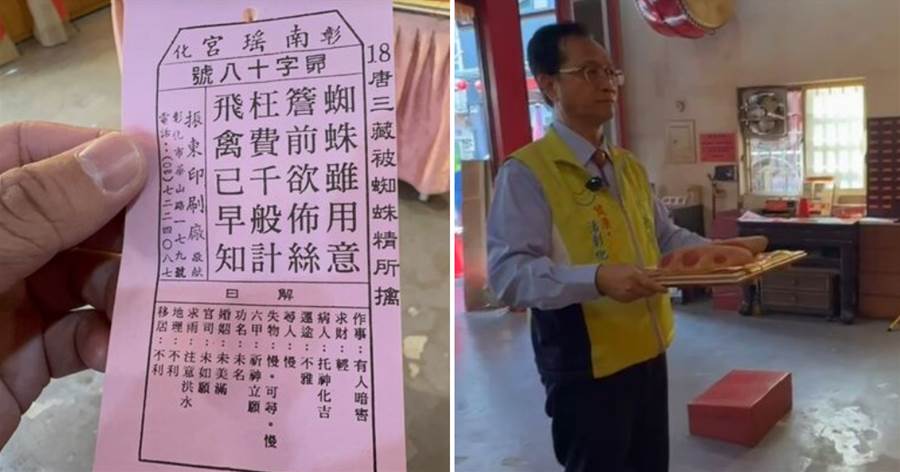 彰南瑤宮化
昴字十八號
18唐三藏被蜘蛛精所擒
蜘蛛雖用意
簷前欲佈絲
枉費千般計
飛禽已早知
振東印刷廠敬獻
彰化市華山路一七九號
電話：(04)七二二四〇八七
解曰
作事：有人暗害
求財：輕
病人：托神化吉
運途：不雅
尋人：慢
失物：慢。可尋。慢
六甲：祈神立願
功名：未名
婚姻：未美滿
官司：未如願
求雨：注意洪水
地理：不利
移居：不利